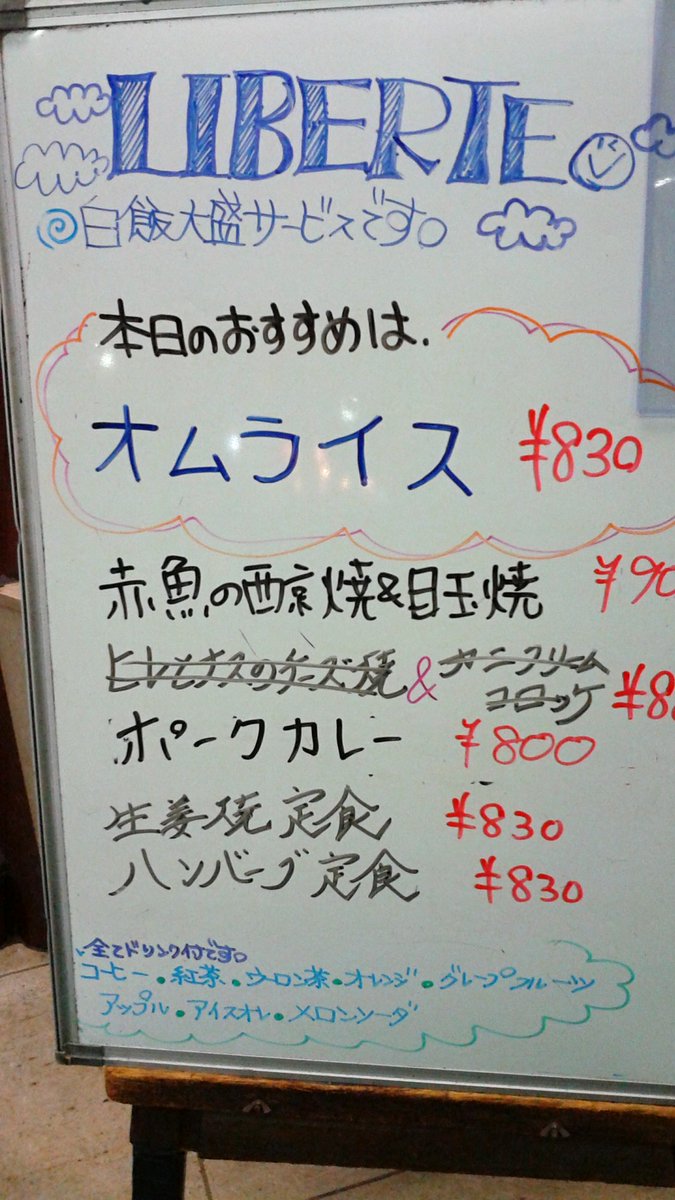 LIBERTE
白飯大盛サービスです。
本日のおすすめは.
オムライス ¥830
赤魚の西京焼&目玉焼 ¥90
ヒレとナスのチーズ焼 & カニクリーム
コロッケ ¥8
ポークカレー ¥800
生姜焼定食 ¥830
ハンバーグ定食 ¥830
全てドリンク付です。
コーヒー・紅茶・ウーロン茶・オレンジ・グレープフルーツ
アップル・アイスオレ・メロンソーダ